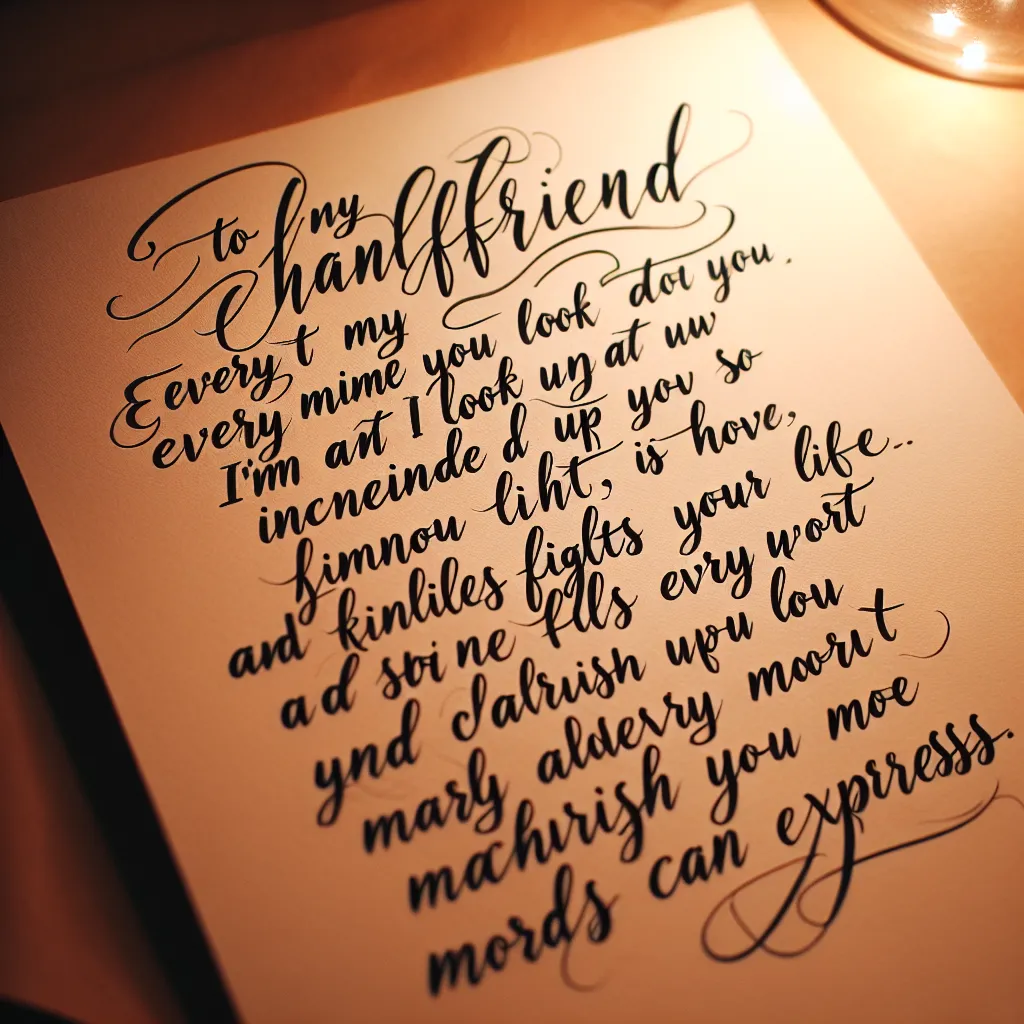 to my
hanlffriend
Eevery t my
every mime you look dor you.
I'mn art I look uy at uw
incneinde d up you so
fimnou liht, is hove,
and kinliles figlts your life...
ad sbi ne flls evry wort
ynd dalruish upu lou
marly aldevrry moorit
machurish you moe
mords can exprresss.